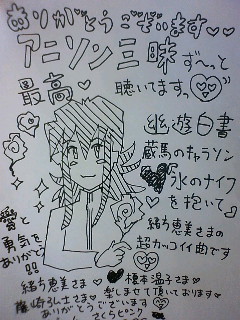 ありがとうございます
アニソン三昧ず〜っと
最高♡聴いてますっ
幽遊白書
蔵馬のキャラソン
氷のナイフ
を抱いて
緒方恵美さまの
超カッコイイ曲です
愛と
勇気を
ありがとう!!
緒方恵美さま♡榎本温子さま♡
楽しませて頂いております♡
ありがとうございます
さくらピンク